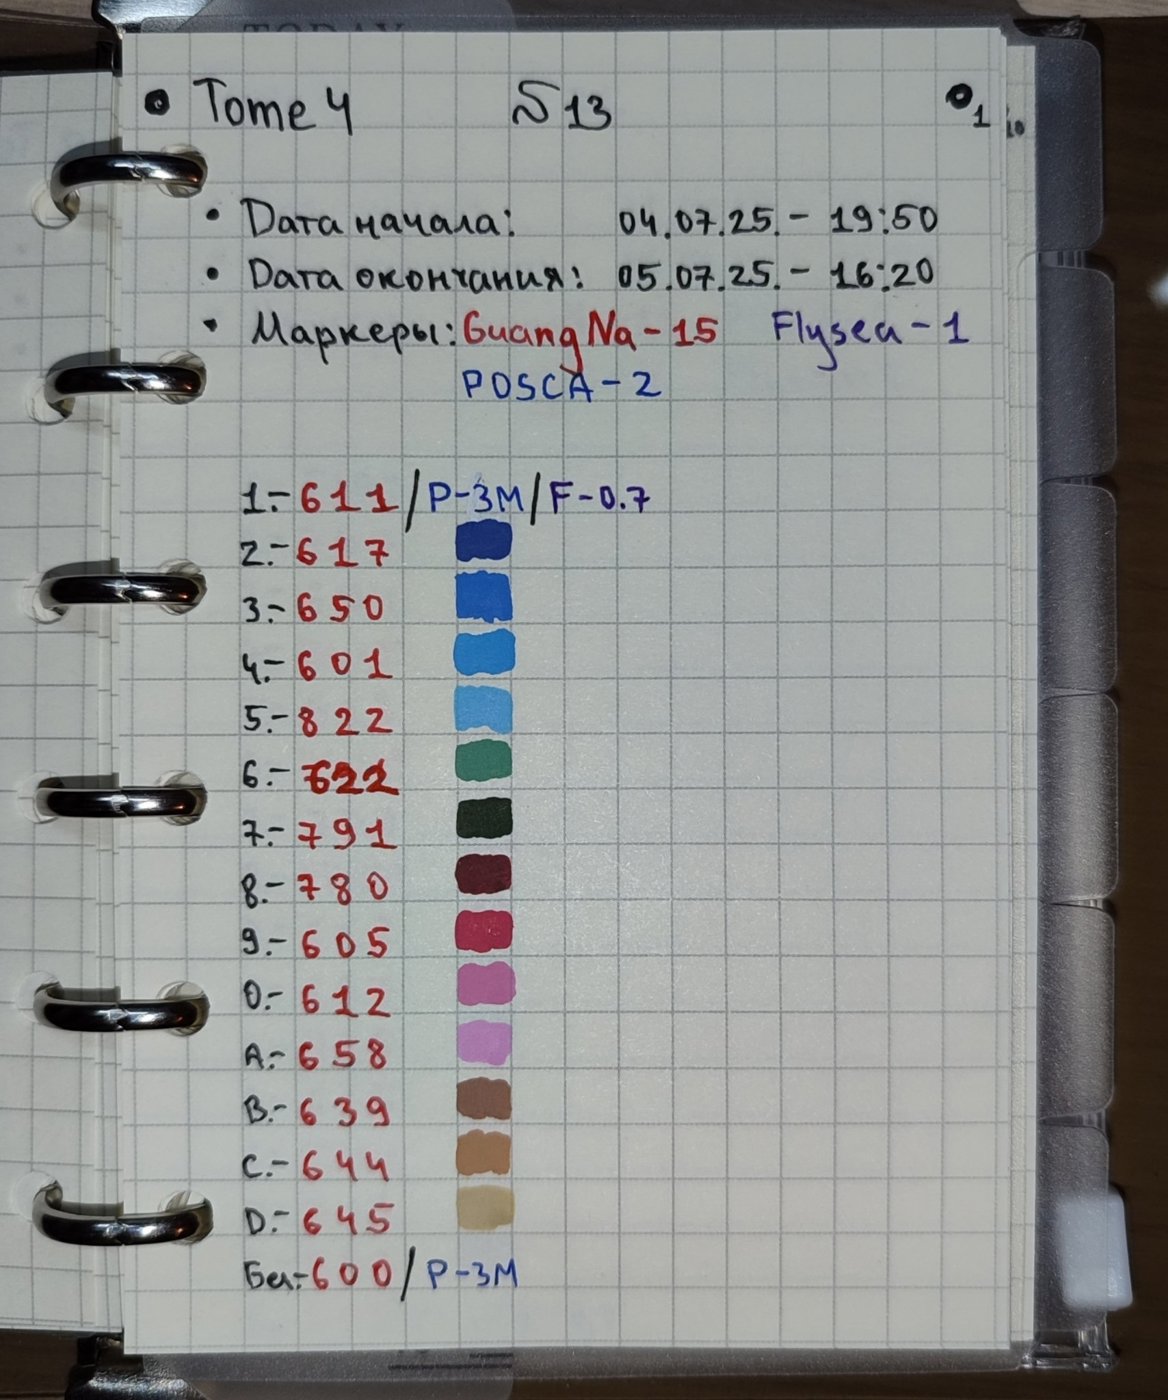 • Tome 4 №13 1
• Дата начала: 04.07.25. - 19:50
• Дата окончания: 05.07.25. - 16:20
• Маркеры: GuangNa - 15 Flysea - 1
POSCA - 2
1.- 611 / P-3M / F-0.7
2.- 617
3.- 650
4.- 601
5.- 822
6.- 622
7.- 791
8.- 780
9.- 605
0.- 612
A.- 658
B.- 639
C.- 644
D.- 645
Бел.- 600 / P-3M